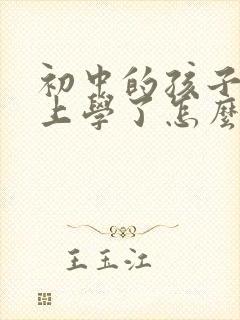 初中的孩子
上學了怎麼
王玉江